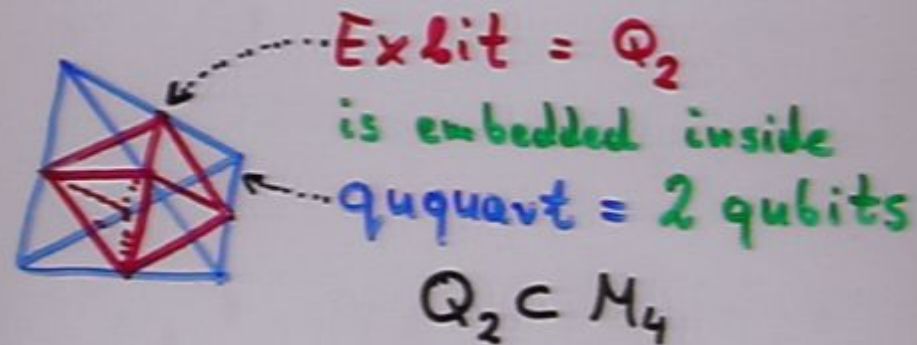 Exbit = Q₂
is embedded inside
ququart = 2 qubits
Q₂ ⊂ M₄